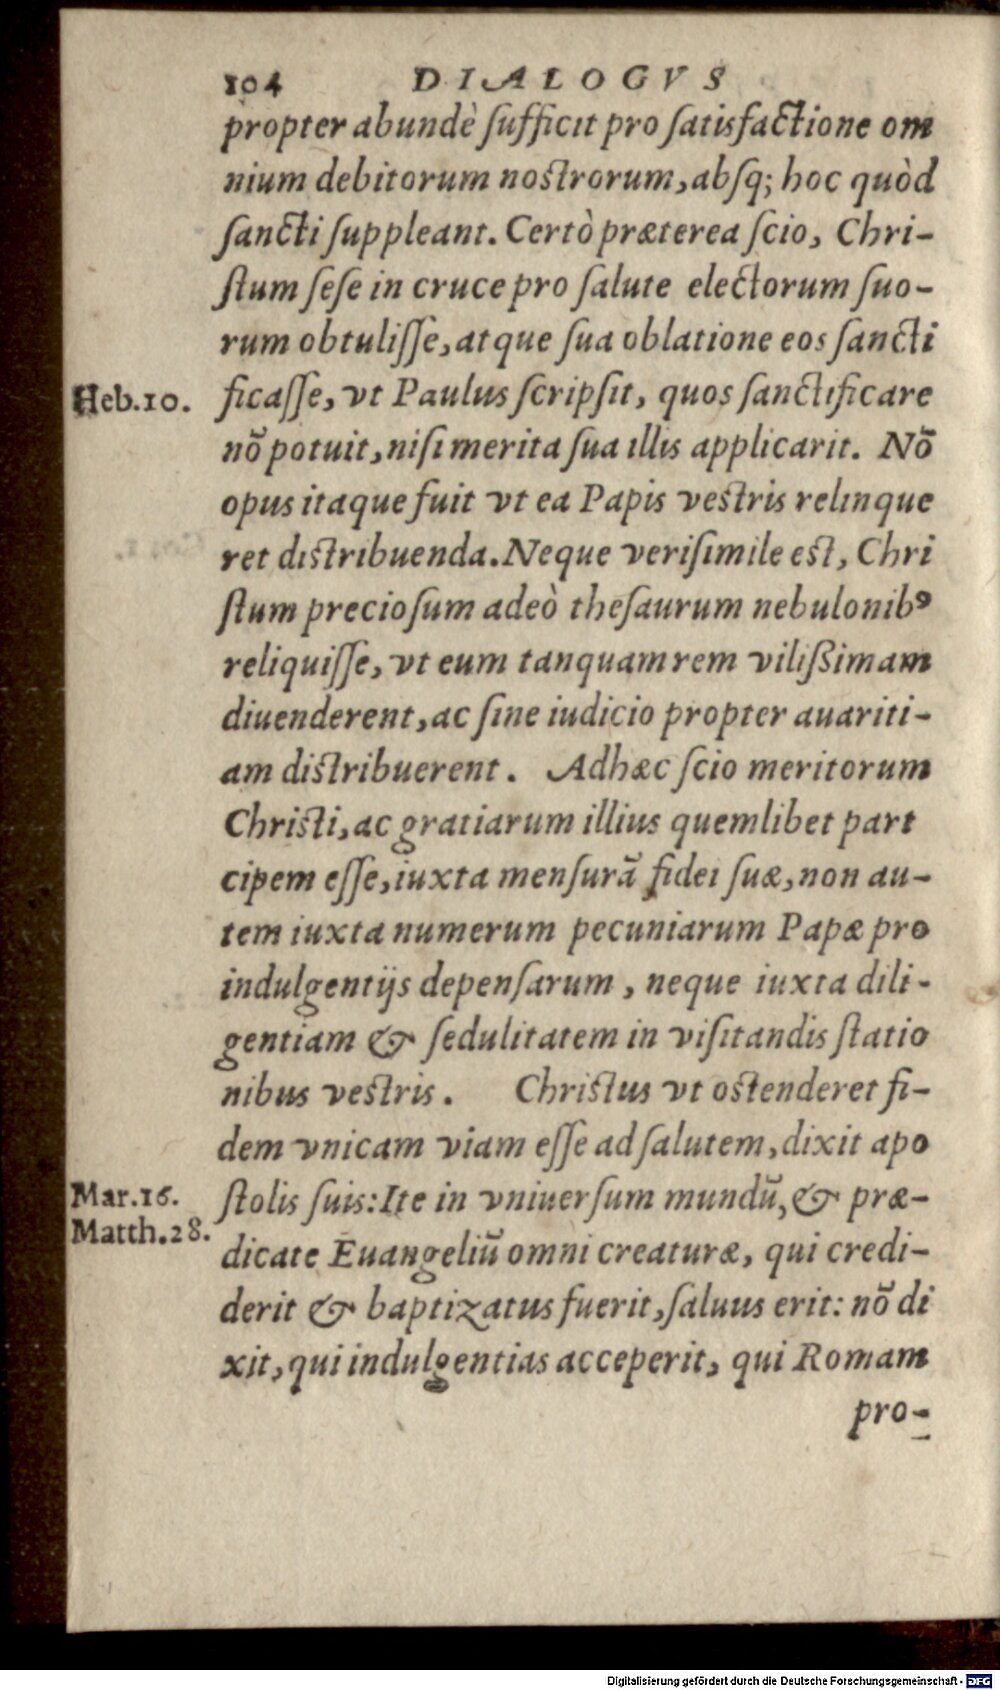 104 DIALOGVS
propter abundè ſufficit pro ſatisfactione om
nium debitorum noſtrorum, abſq; hoc quòd
ſancti ſuppleant. Certò præterea ſcio, Chri-
ſtum ſeſe in cruce pro ſalute electorum ſuo-
rum obtuliſſe, atque ſua oblatione eos ſancti
Heb.10. ficaſſe, vt Paulus ſcripſit, quos ſanctificare
nō potuit, niſi merita ſua illis applicarit. Nō
opus itaque fuit vt ea Papis veſtris relinque
ret diſtribuenda. Neque veriſimile eſt, Chri
ſtum precioſum adeò theſaurum nebulonibꝰ
reliquiſſe, vt eum tanquam rem viliſsimam
diuenderent, ac ſine iudicio propter auariti-
am diſtribuerent. Adhæc ſcio meritorum
Chriſti, ac gratiarum illius quemlibet part
cipem eſſe, iuxta menſurā fidei ſuæ, non au-
tem iuxta numerum pecuniarum Papæ pro
indulgentijs depenſarum, neque iuxta dili-
gentiam & ſedulitatem in viſitandis ſtatio
nibus veſtris. Chriſtus vt oſtenderet fi-
dem vnicam viam eſſe ad ſalutem, dixit apo
Mar.16. ſtolis ſuis: Ite in vniuerſum mundū, & præ-
Matth.28. dicate Euangeliū omni creaturæ, qui credi-
derit & baptizatus fuerit, ſaluus erit: nō di
xit, qui indulgentias acceperit, qui Romam
pro-
Digitalisierung gefördert durch die Deutsche Forschungsgemeinschaft - DFG